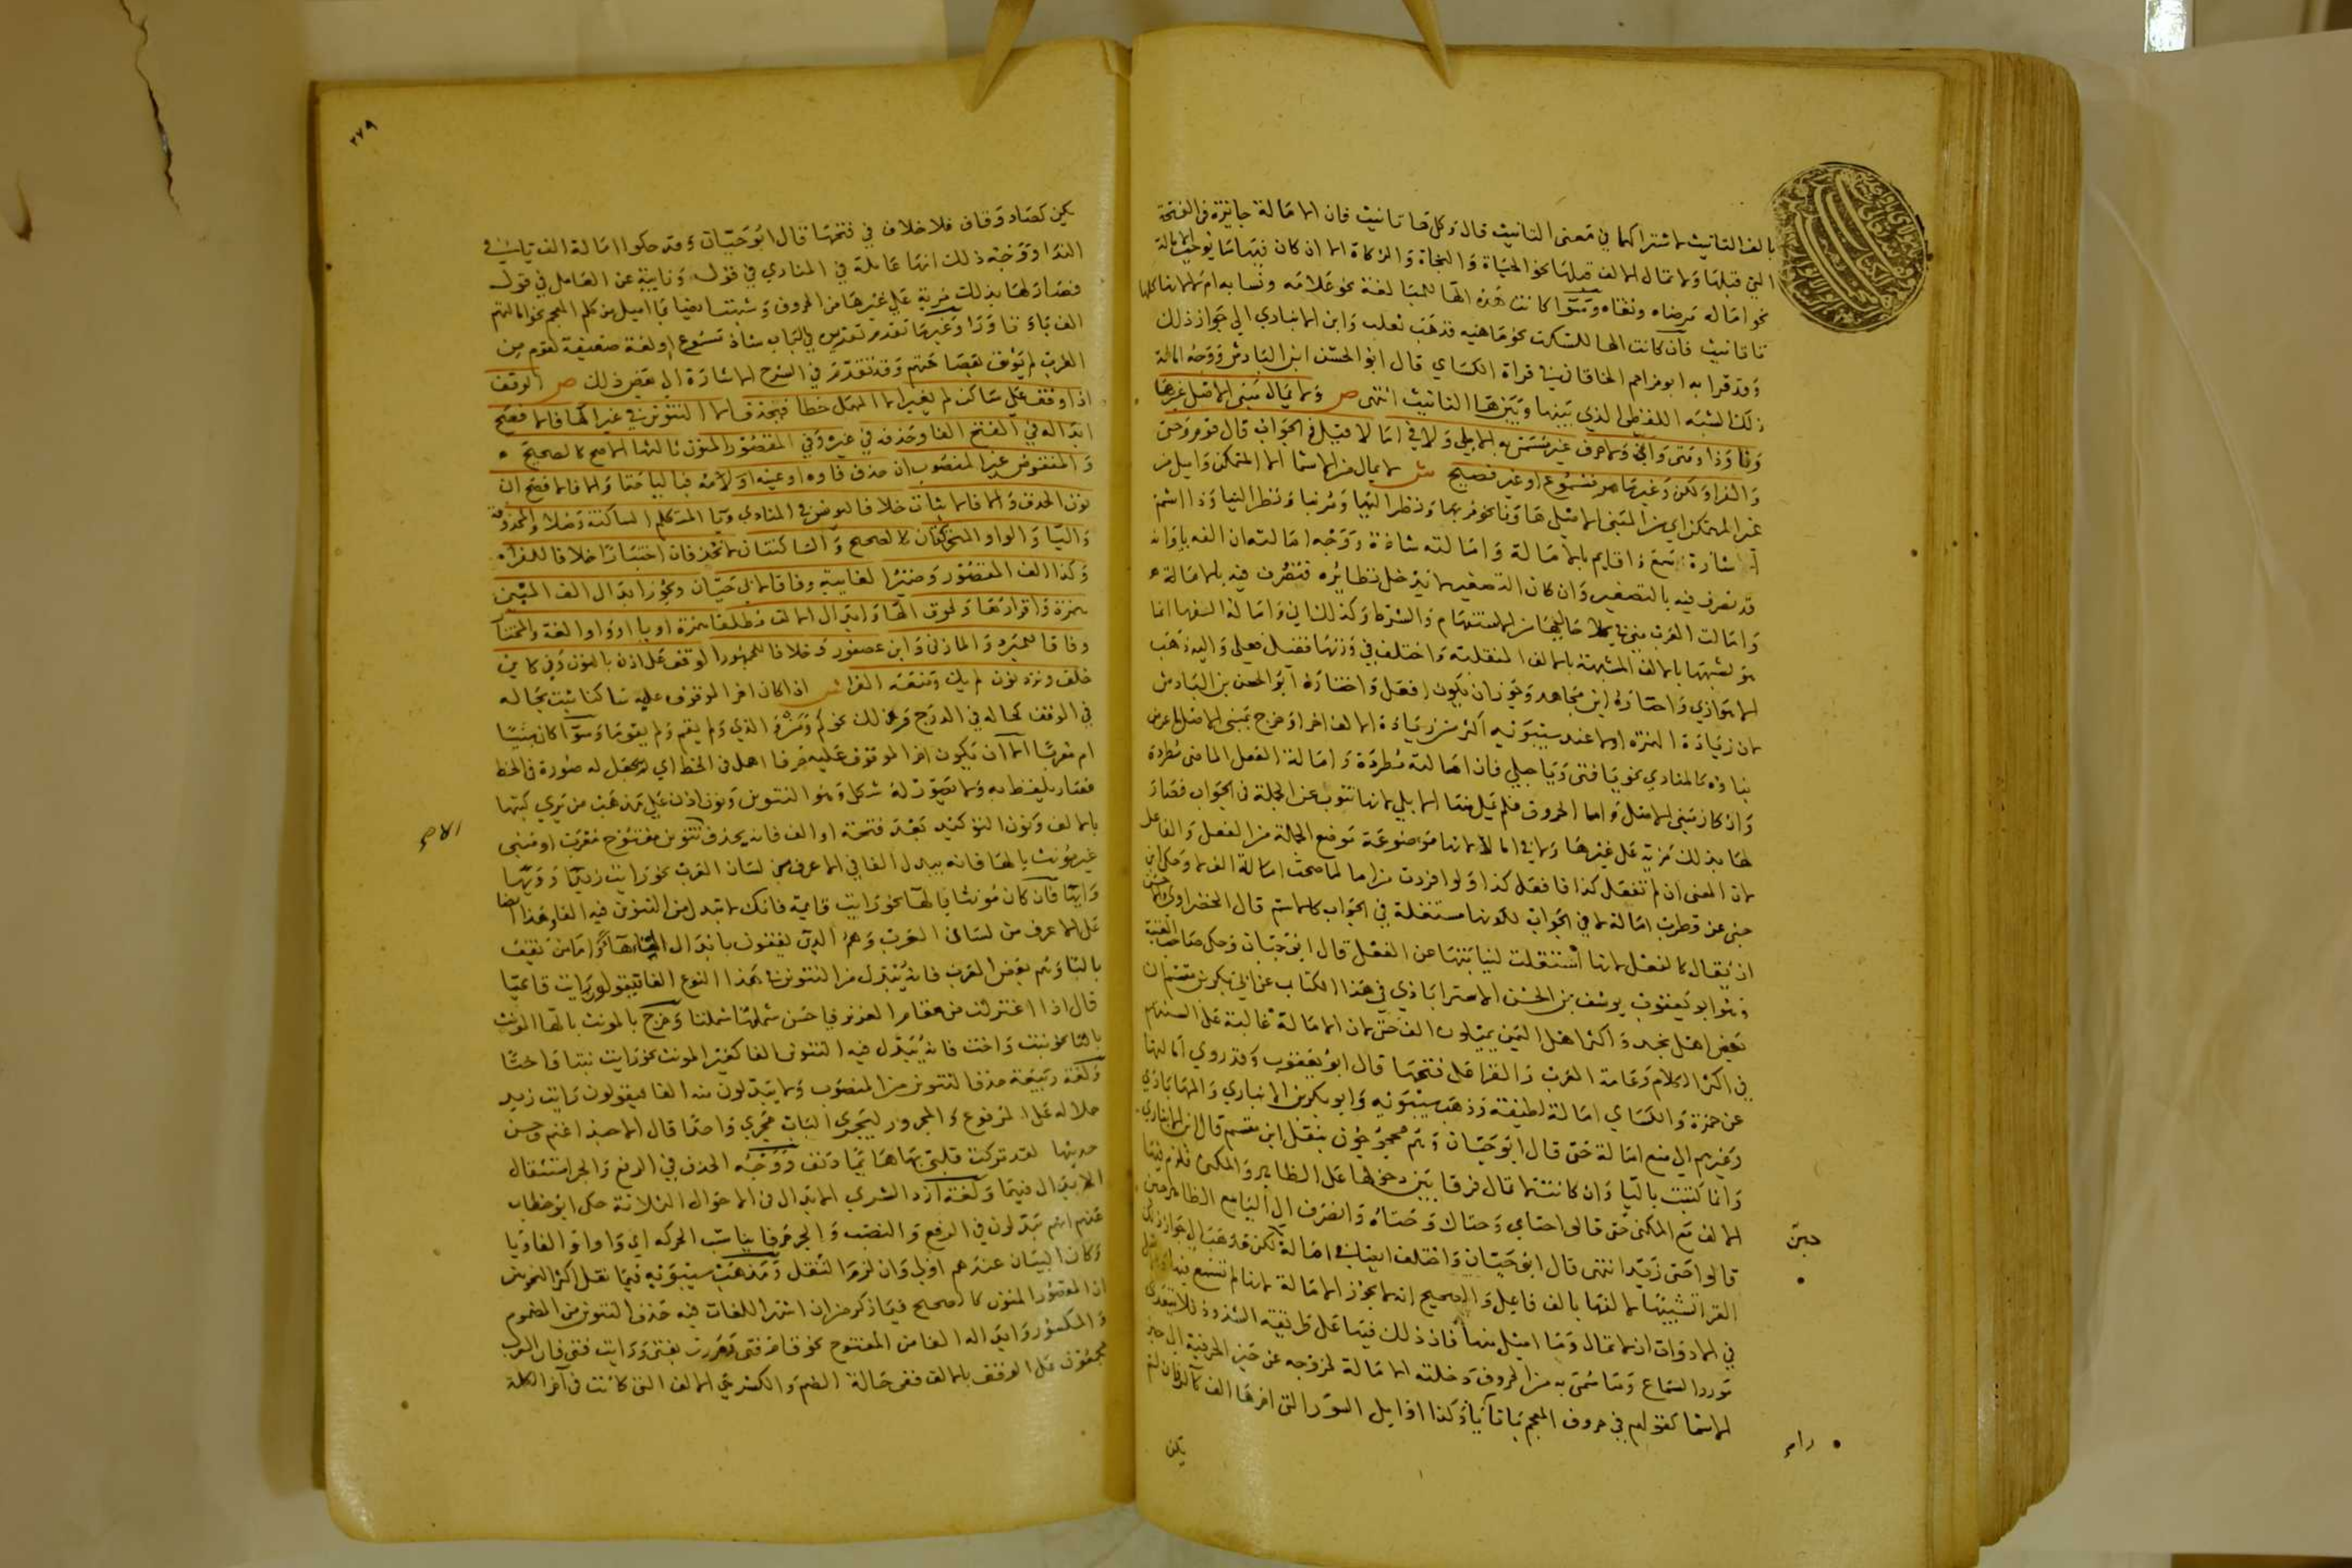 بالف التانيث لاشتراكهما في معنى التانيث قال وكل هاتانيث فان الامالة جايزة في الفتحة
التي قبلها ولا تمال الالف قبلها نحو الحياة والنجاة والزكاة الا ان كان فيها ما يوجب امالة
نحو امالة مرضاه وتقاه وسوا كانت هذه الها للمبالغة نحو علامه ونسابه ام لا لانها كلها
تاتانيث فان كانت الها للسكت نحو ماهيه فذهب ثعلب وابن الانبادي الى جواز ذلك
وقد قرا به ابو مزاحم الخاقاني في قراة الكساي قال ابو الحسن ابن البادش ووجه امالة
ذلك الشبه اللفظي الذي بينها وبين ها التانيث انتهى ص ولا يمال مبني الاصل غيرها
ونا وذا ومتى واني ولا حرف غير مسمى به الا بلى ولا في امالا قيل في الجواب قال قوم وحتى
والفرا ولكن وغيرها مو مسموع او غير فصيح ش لا يمال من الاسما الا المتمكن واميل من
غير المتمكن اي من المبني الاصل ها ونا نحو مر بها ونظر اليها ومر بنا ونظر الينا وذا اسم
اشارة سمع ذا قايم بالامالة وامالته شاذة ووجه امالته ان الفه ياوانه
قد تصرف فيه بالتصغير وان كان التصغير لا يدخل نظايره فتصرف فيه بالامالة
وامالت العرب متى في كلا حاليها من الاستفهام والشرط وكذلك انى وامالة الفها انما
هو لشبهها بالالف المشبهة بالالف المنقلبة واختلف في وزنها فقيل فعلى واليه ذهب
الاهوازي واختاره ابن مجاهد ويجوز ان يكون افعل واختاره ابو الحسن بن البادش
لان زيادة الهمزة اولا عند سيبويه اكثر من زيادة الالف اخرا وخرج بمبني الاصل ما عرض
بناوه كالمنادي نحو يا فتى ويا حبلى فان امالته مطردة وامالة الفعل الماضي مطردة
وان كان مبني الاصل واما الحروف فلم يمل منها الا بلى لانها تنوب عن الجملة في الجواب فصار
لها بذلك مزية على غيرها ولا في امالا لانها موضوعة موضع الجملة من الفعل والفاعل
لان المعنى ان لم تفعل كذا فافعل كذا ولو افردت من اما لما صحت امالة الف لا وحكى ابن
جنى عن قطرب امالة لا في الجواب لكونها مستقلة في الجواب كالاسم قال الخضراوي واحسن
ان يقال كالفعل لانها استقلت لنيابتها عن الفعل قال ابو حيان وحكى صاحب الغنية
وهو ابو يعقوب يوسف بن الحسن الاستراباذي في هذا الكتاب عن ابي بكر بن مقسم ان
بعض اهل نجد واكثر اهل اليمن يميلون الف حتى لان الامالة غالبة على السنتهم
في اكثر الكلام وعامة العرب والفرا على فتحها قال ابو يعقوب وقد روي امالتها
عن حمزة والكساي امالة لطيفة وذهب سيبويه وابو بكر بن الانباري والمهاباذي
وغيرهم الى منع امالة حتى قال ابو حيان وهم محجوجون بنقل ابن مقسم قال ابن الانباري
وانما كتبت باليا وان كانت لا تمال فرقا بين دخولها على الظاهر والمكنى فلزم فيها
الالف مع المكنى حتى قالوا حتاي وحتاك وحتاه وانصرف الى اليا مع الظاهر حين
قالوا حتى زيد انتهى قال ابو حيان واختلف ايضا في امالة لكن فذهب الى جواز ذلك
الفرا تشبيها لالفها بالف فاعل والصحيح انه لا يجوز الامالة لانها لم تسمع فيها
في الادوات ان لا تمال وما اميل منها فان ذلك فيها على طريقة الشذوذ فلا يتعدى
مورد السماع وما سمى به من الحروف دخلته الامالة لخروجه عن حيز الحرفية الى حيز
الاسما كقولهم في حروف المعجم با تا يا وكذا اوايل السور التي اخرها الف كالر فان لم
يكن
حين
راء
٢٧٩
يكن كصاد وقاف فلا خلاف في فتحها قال ابو حيان وقد حكوا امالة الف يا في
الندا ووجه ذلك انها عاملة في المنادي في قول ونايبة عن العامل في قول
فصار لها بذلك مزية على غيرها من الحروف وشبهت ايضا بما اميل من كلم المعجم نحو امالتهم
الف با وتا ورا وغيرها تقدم تقدير في الباب شاذ مسموع او لغة ضعيفة لقوم من
العرب لم يوثق بفصاحتهم وقد تقدم في الشرح الاشارة الى بعض ذلك ص الوقف
اذا وقف على ساكن لم يغير الا المهمل خطا فيحذف الا التنوين في غير الها فالافصح
ابداله في الفتح الفا وحذفه في غيره وفي المقصور المنون ثالثها الاصح كالصحيح
والمنقوص غير المنصوب ان حذف فاوه او عينه او لامه فباليا حتما والا فالافصح ان
نون الحذف والا فالاثبات خلافا ليونس في المنادي ويا المتكلم الساكنة وصلا والمحذوفة
واليا والواو المتحركتان كالصحيح والساكنتان لا تحذفان اختيارا خلافا للفرا
وكذا الف المقصور وضمير الغايبة وفاقا لابي حيان ويجوز ابدال الف المبني
همزة واقرارها ولحوق الها وابدال الالف مطلقا همزة او يا او واوا لغة والمختار
وفاقا للمبرد والمازني وابن عصفور وخلافا للجمهور الوقف على اذن بالنون وفي كاين
خلف ونرد نون لم يك ومنعه الفرا ش اذا كان اخر الموقوف عليه ساكنا ثبت بحاله
في الوقف كحاله في الدرج وذلك نحو كم ومن والذي ولم يقم ولم يقوما وسوا كان مبنيا
ام معربا الا ان يكون اخر الموقوف عليه حرفا اهمل في الخط اي لم يجعل له صورة في الخط
فصار يلفظ به ولا تصور له شكل وهو التنوين ونون اذن على مذهب من يرى كتبها
بالالف ونون التوكيد بعد فتحة او الف فانه يحذف تنوين مفتوح معرب او مبني
غير مونث بالها فانه يبدل الفا في الاعرف من لسان العرب نحو رايت زيدا وويها
وايها فان كان مونثا بالها نحو رايت قايمة فانك لا تبدل من التنوين فيه الفا وهذا ايضا
على الاعرف من لسان العرب وهم الذين يقفون بابدال التا ها واما من يقف
بالتا وهم بعض العرب فانه يبدل من التنوين في هذا النوع الفا فيقول رايت قايمتا
قال اذا اغترلت من مقام القرنز فيا حسن شملتها شملتا وخرج بالمونث بالها المونث
بالتا نحو بنت واخت فانه يبدل فيه التنوين الفا كغير المونث نحو رايت بنتا واختا
ولغة ربيعة حذف التنوين من المنصوب ولا يبدلون منه الفا فيقولون رايت زيد
حملا له على المرفوع والمجرور ليجري الباب مجرى واحدا قال الا حبذا غنم وحسن
حديثها لقد تركت قلبي بها هايما دنف ووجه الحذف في الرفع والجر استثقال
الابدال فيهما ولغة ازد الشري الابدال في الاحوال الثلاثة حكى ابو خطاب
عنهم انهم يبدلون في الرفع والنصب والجر حرفا يناسب الحركه اي واوا والفا ويا
وكان البيان عندهم اولى وان لزم الثقل ومذهب سيبويه فيما نقل اكثر النحويين
ان المقصور المنون كالصحيح فيما ذكر من ان اشهر اللغات فيه حذف التنوين من المضموم
والمكسور وابداله الفا من المفتوح نحو قام فتى ومررت بفتى ورايت فتى فان العرب
مجمعون على الوقف بالالف ففي حالة الضم والكسر هي الالف التي كانت في اخر الكلمة